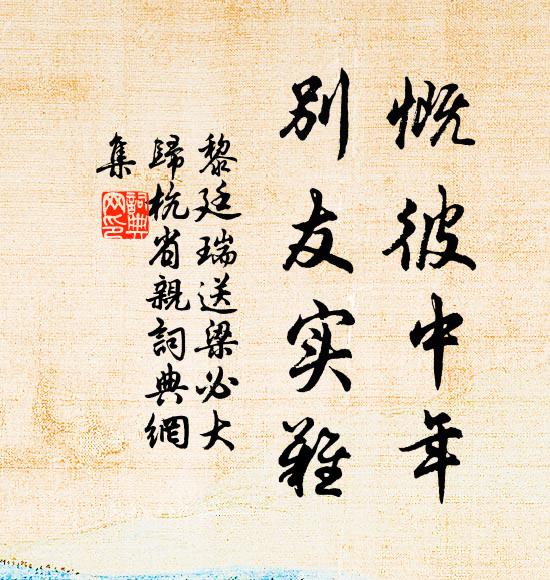 慨彼中年
别友实難
黎廷瑞送梁必大
歸杭省親詞典網
集
詞典网印